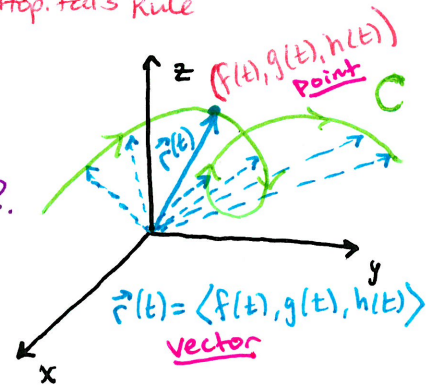 Hop. tal's Rule
z
(f(t), g(t), h(t))
point
C
r⃗(t)
?.
y
r⃗(t) = ⟨f(t), g(t), h(t)⟩
vector
x